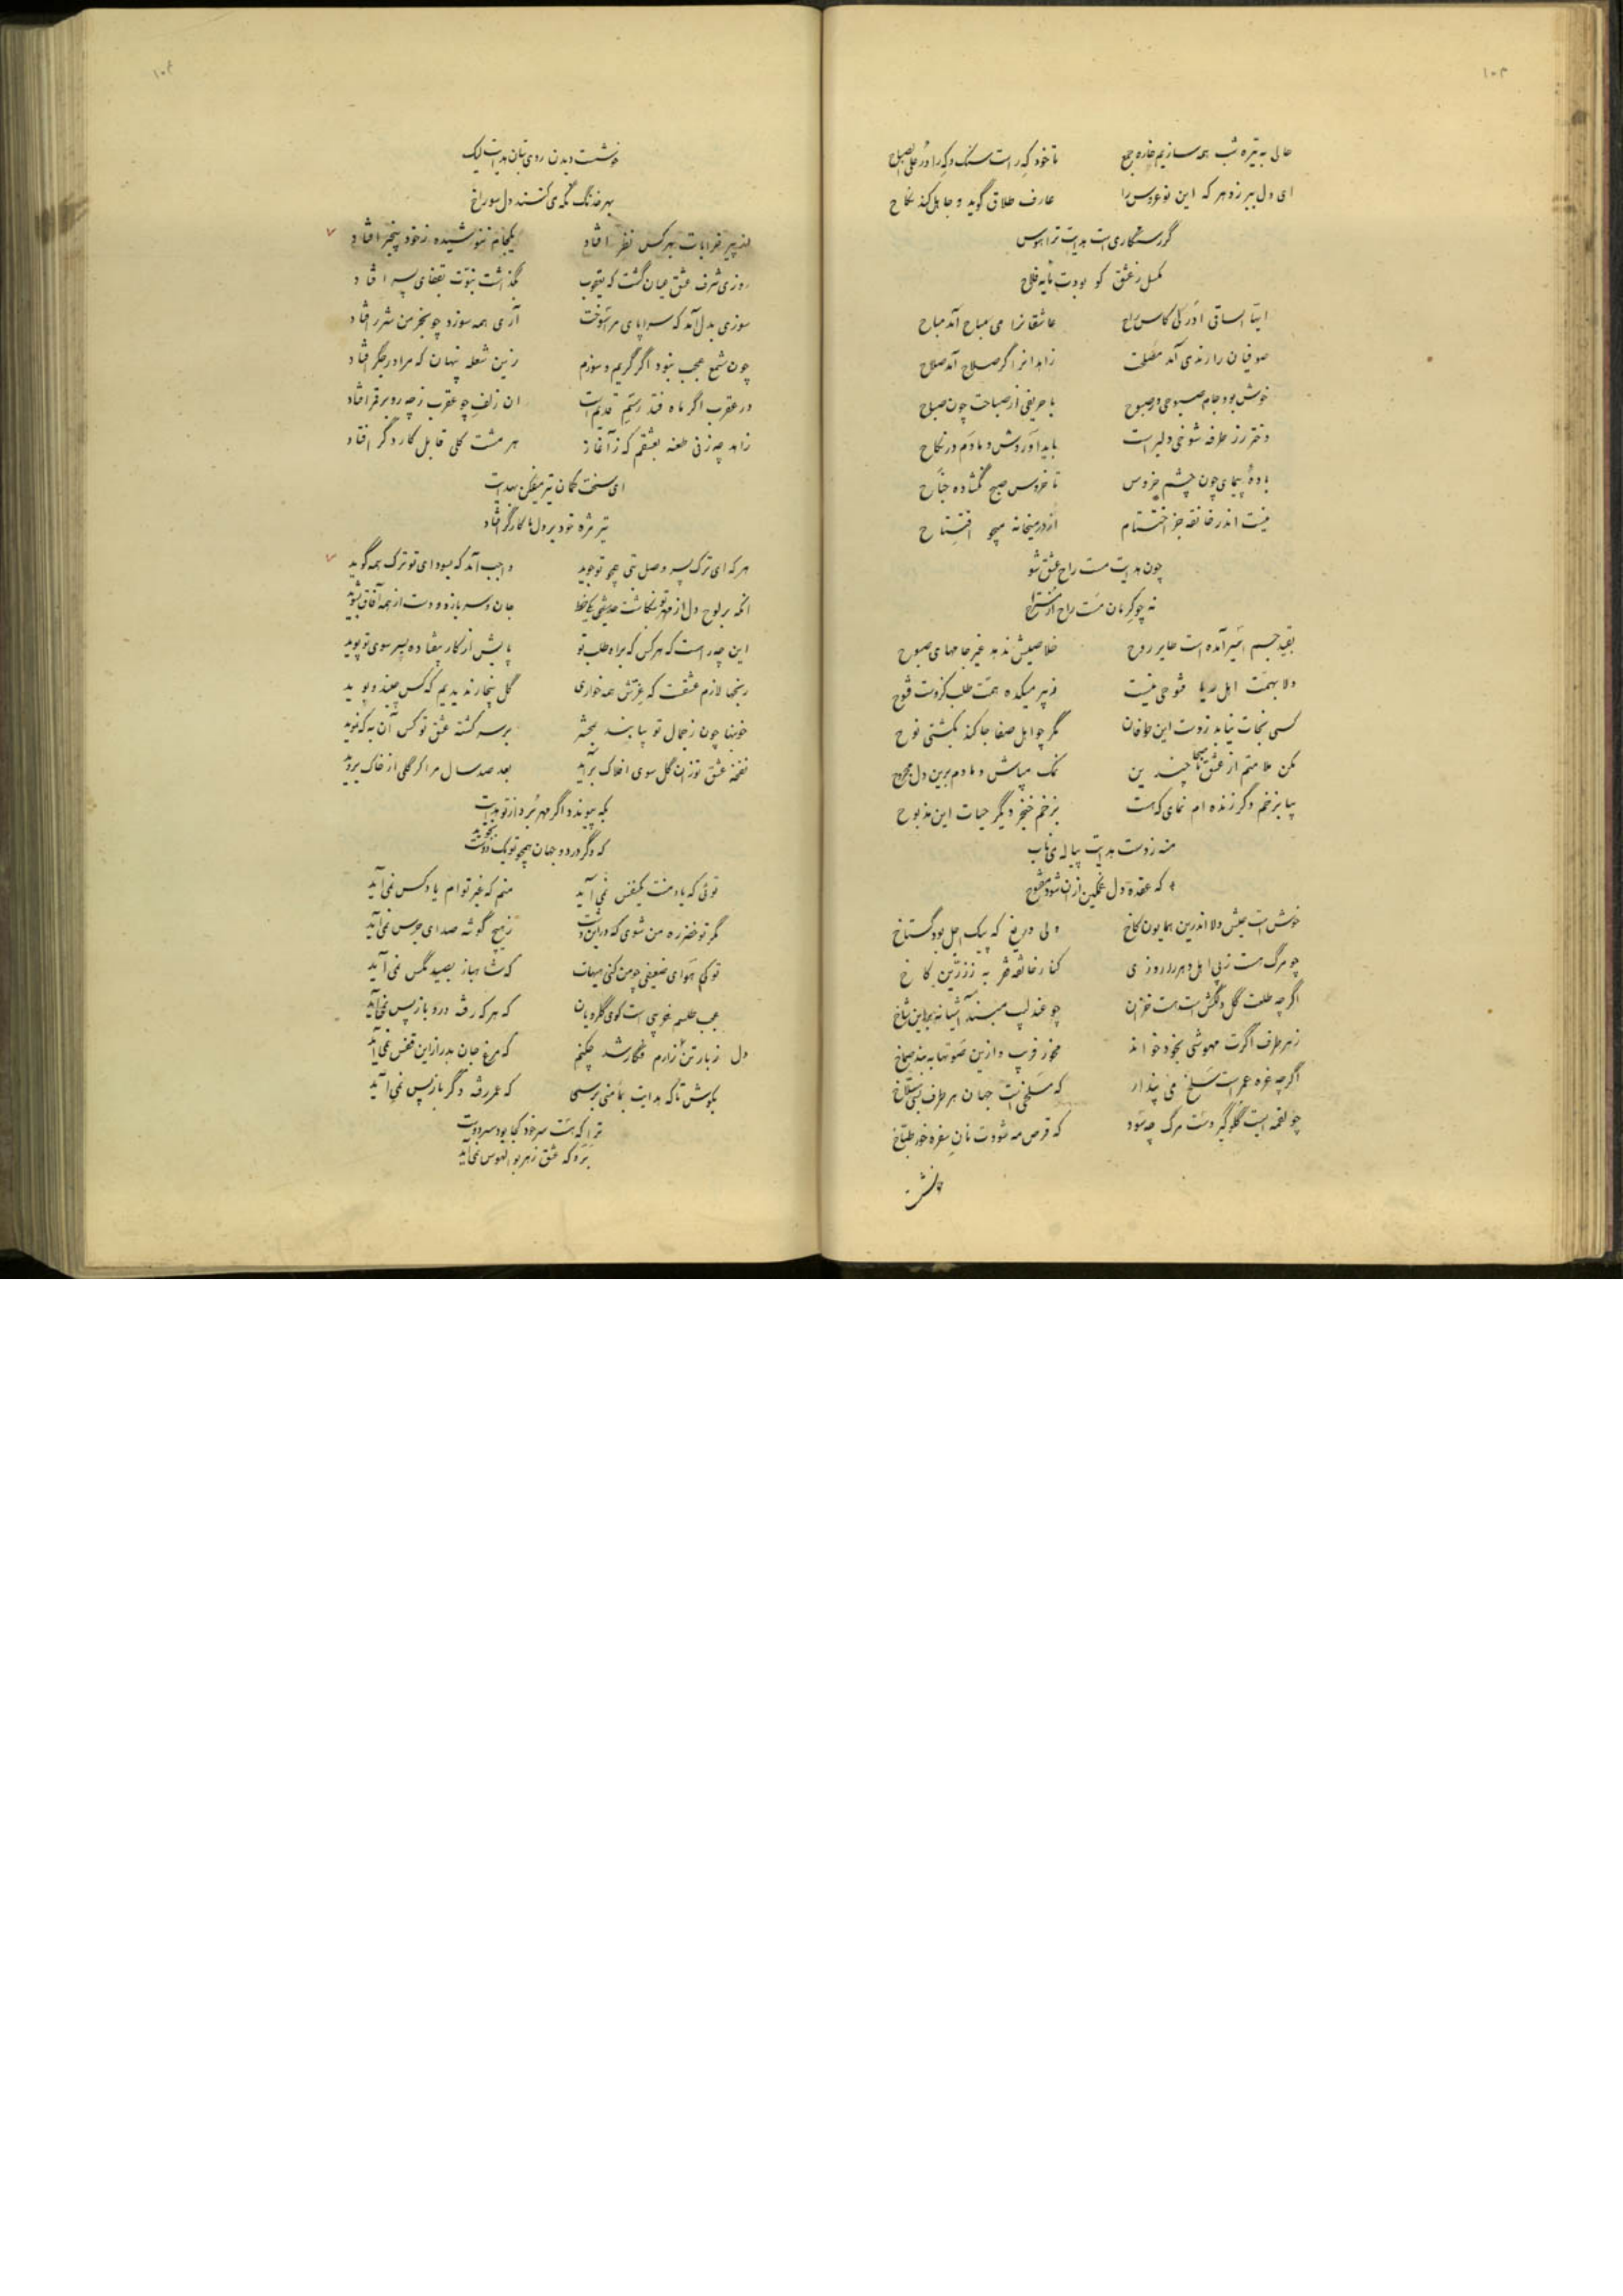 ۱۰۳
حالی به تیره شب همه سازیم خاره جمع تا خود که راست سنگ و که را در علی الصباح
ای دل ببر ز دهر که این نوعروس را عارف طلاق گوید و جاهل کند نکاح
گر رستگاری است هدایت ترا هوس
مکسل ز عشق کو بودت مایه فلاح
ایها الساقی ادر لی کاس راح عاشقانرا می مباح آمد مباح
صوفیان را رندی آمد مصلحت زاهدانرا گر صلاح آمد صلاح
خوش بود جام صبوحی در صبوح با حریفی از صباحت چون صباح
دختر رز طرفه شوخی دلبر است باید آوردش دمادم در نکاح
باده پیمای چون چشم خروس تا خروس صبح نگشاده جناح
نیست اندر خانقه جز اختتام از در میخانه میجو افتتاح
چون هدایت مست راح عشق شو
نه چو کرمان مست راح از مستراح
بقید جسم اسیر آمده است طایر روح خلاصیش ندهد غیر جامهای صبوح
دلا بهمت اهل ریا فتوحی نیست ز پیر میکده همت طلب کزوست فتوح
کسی نجات نیابد ز دست این طوفان مگر چو اهل صفا جا کند بکشتی نوح
مکن ملامتم از عشق ناصحا چندین نمک مپاش دمادم برین دل مجروح
بیا بزخم دگر زنده ام نمای که هست بزخم خنجر دیگر حیات این مذبوح
منه ز دست هدایت پیاله می ناب
که عقده دل غمگین ازان شود مفتوح
خوش است عیش دلا اندرین همایون کاخ ولی دریغ که پیک اجل بود گستاخ
چو مرگ هست ز پی اهل دهر را روزی کنار خانقه فقر به ز زرین کاخ
اگرچه طلعت گل دلکش است هست خزان چو عندلیب مبند آشیانه بر این شاخ
ز هر طرف اگرت مهوشی بخود خواند مخور فریب و ازین صوتها به بند صماخ
اگرچه غره عمر است سلخ می پندار که مسلخی است جهان هر طرف بسی سلاخ
چو لقمه ایست گلوگیر دست مرگ چه سود که قرص مه شودت نان سفره خور طباخ
۱۰۴
خوشست دیدن روی بتان هدایت لیک
بهر خدنگ نگه می کنند دل سوراخ
از پیر خرابات بهر کس نظر افتاد یکجام ننوشیده ز خود بیخبر افتاد
روزی شرف عشق عیان گشت که یعقوب بگذاشت نبوت بقفای پسر افتاد
سوزی بدل آمد که سراپای مرا سوخت آری همه سوزد چو بخرمن شرر افتاد
چون شمع عجب نبود اگر گریم و سوزم زین شعله پنهان که مرا در جگر افتاد
در عقرب اگر ماه فتد رسم قدیم است آن زلف چو عقرب ز چه رو بر قمر افتاد
زاهد چه زنی طعنه بعشقم که ز آغاز هر مشت گلی قابل کار دگر افتاد
ای سخت کمان تیر میفکن بهدایت
تیر مژه تو بر دل ما کارگر افتاد
هر که ای ترک پسر وصل بتی همچو تو جوید واجب آمد که بسودای تو ترک همه گوید
آنکه بر لوح دل از مهر تو بنگاشت حدیثی یک خط جان و سر بازد و دست از همه آفاق بشوید
این چه راه است که هر کس که براه طلب تو پایش از کار بیفتاده بسر سوی تو پوید
رنجها لازم عشقست که عزتش همه خواری گل بیخار ندیدیم که کس چیند و بوید
خونبها چون ز جمال تو بیابند بمحشر بر سر کشته عشق تو کس آن به که نموید
نفخه عشق تو زان گل سوی افلاک برآید بعد صد سال مرا گر گلی از خاک بروید
بکه پیوندد اگر مهر ببرد از تو هدایت
که دگر در دو جهان همچو تو یک دوست نجوید
توئی که یاد منت یکنفس نمی آید منم که غیر توام یاد کس نمی آید
مگر تو خضر ره من شوی که در این دشت ز هیچ گوشه صدای جرس نمی آید
تو کی هوای ضعیفی چو من کنی هیهات که شاهباز بصید مگس نمی آید
عجب طلسم غریبی است کوی گلرویان که هر که رفته درو باز پس نمی آید
دل ز بار تن آزارم فگار شد چکنم که مرغ جان بدر از این قفس نمی آید
بکوش تا که هدایت بمامنی برسی که عمر رفته دگر باز پس نمی آید
ترا که هست سر خود کجا بود سر دوست
برو که عشق ز هر بوالهوس نمی آید